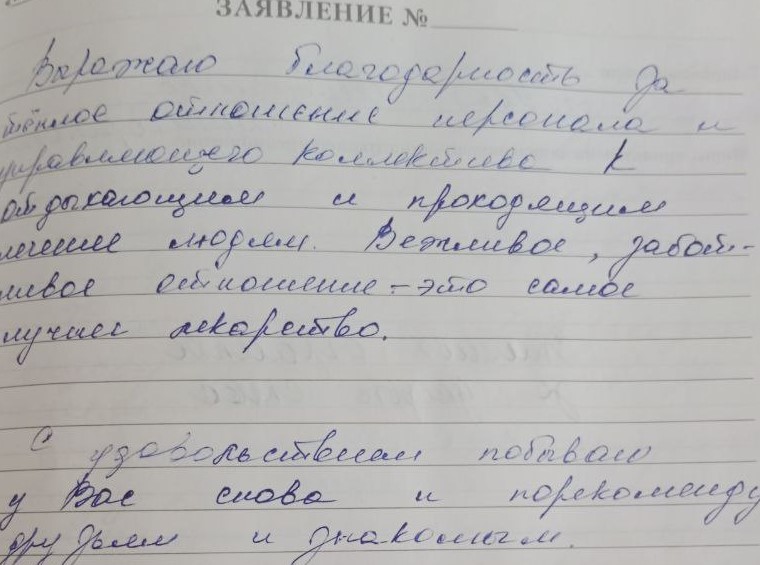 ЗАЯВЛЕНИЕ №
Выражаю благодарность за
тёплое отношение персонала и
управляющего коллектива к
отдыхающим и проходящим
лечение людям. Вежливое, забот-
ливое отношение - это самое
лучшее лекарство.
С удовольствием побываю
у Вас снова и порекоменду
друзьям и знакомым.